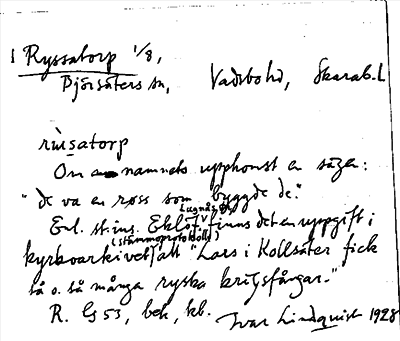 1 Ryssatorp 1/8,
Björsäters sn, Vadsbo hd, Skarab. L
rüsatorp
Om namnets upphomst en sägen:
"de va en røss som byggde de."
Enl. st.ins. Eklöf, Lugnås, finns det en uppgift i
(stämmoprotokoll)
kyrkoarkivet att "Lars i Kollsäter fick
så o. så många ryska krigsfångar."
R. 53, bek, kb. Ivar Lindquist 1928